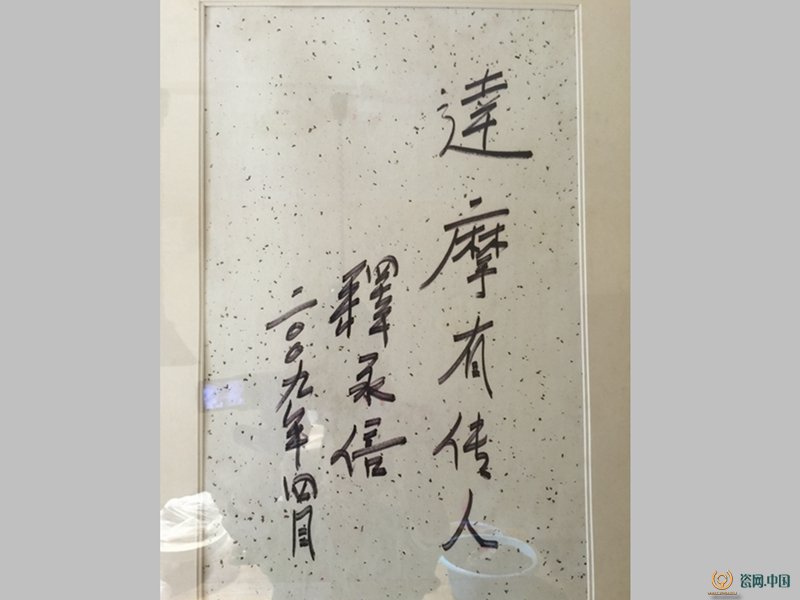 達摩有传人
釋永信
二〇〇九年四月
瓷网.中国